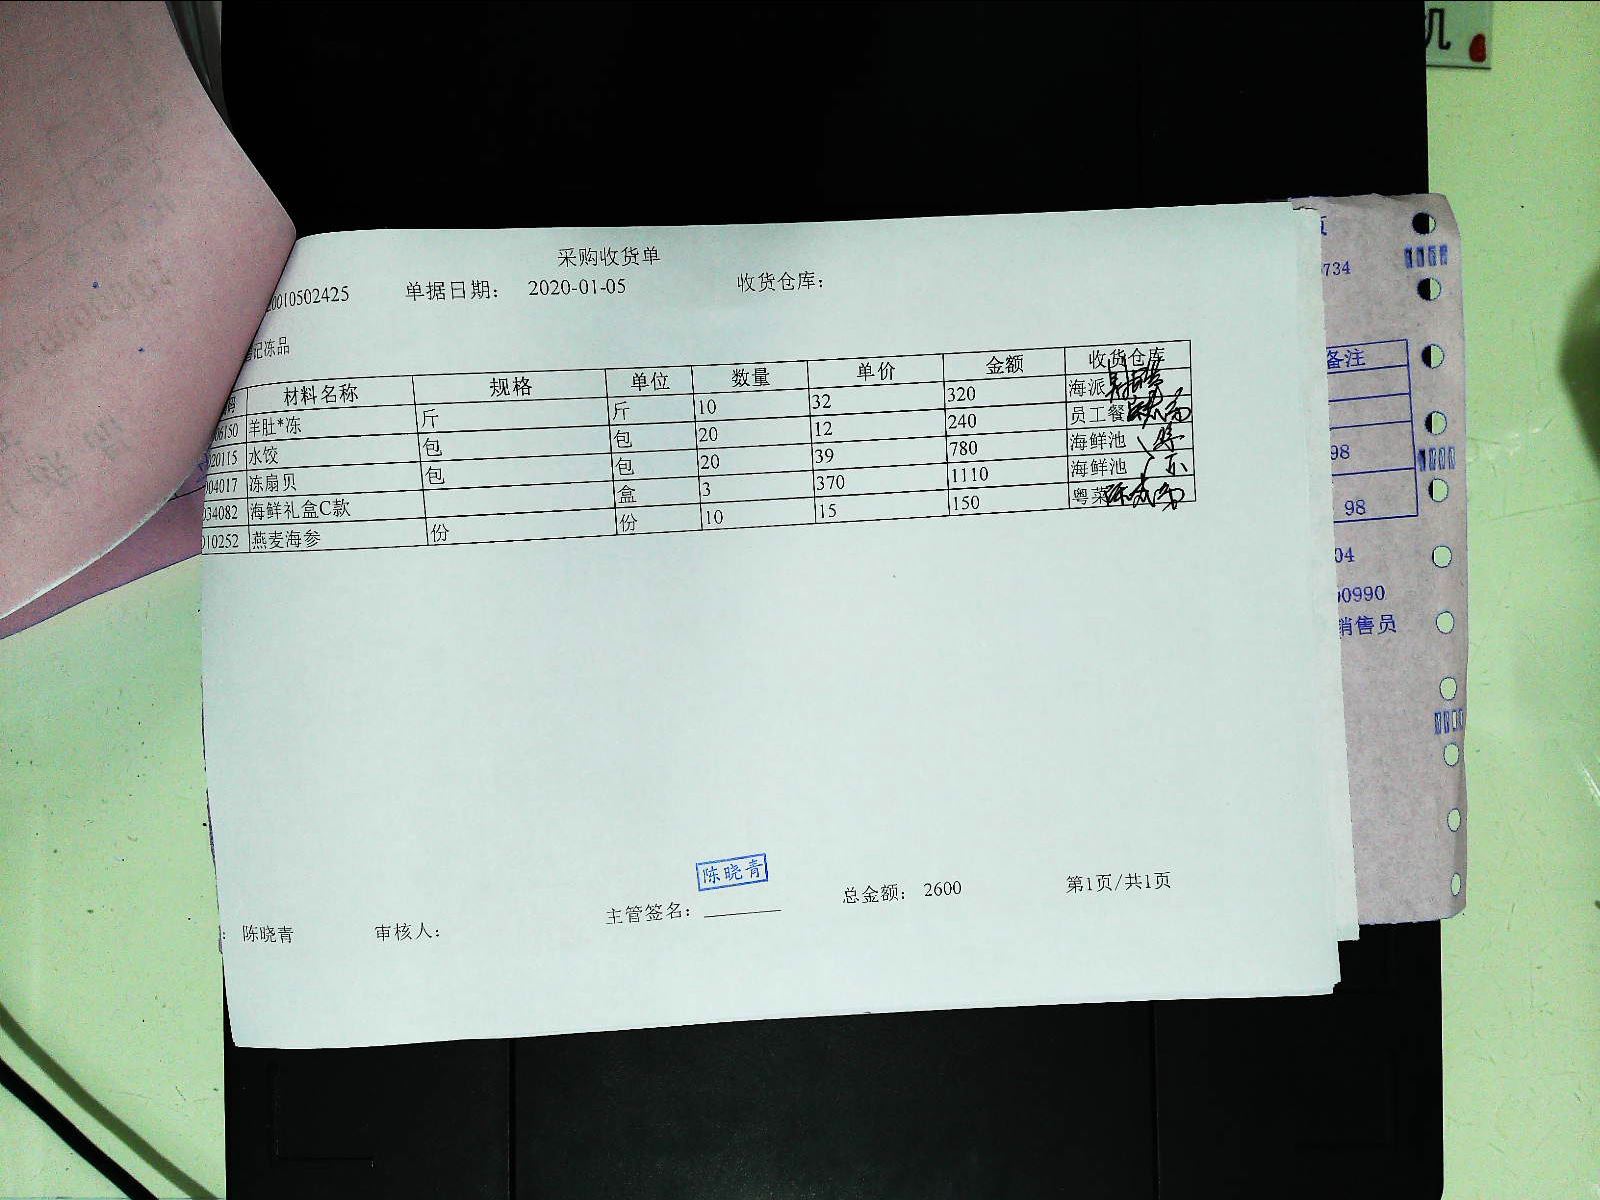 机
采购收货单
0010502425 单据日期： 2020-01-05 收货仓库：
记冻品
材料名称 规格 单位 数量 单价 金额 收货仓库
06150 羊肚*冻 斤 斤 10 32 320 海派
020115 水饺 包 包 20 12 240 员工餐
004017 冻扇贝 包 包 20 39 780 海鲜池
034082 海鲜礼盒C款 盒 3 370 1110 海鲜池
010252 燕麦海参 份 份 10 15 150 粤菜
陈晓青
主管签名： 总金额： 2600 第1页/共1页
陈晓青 审核人：
页
734
备注
98
98
04
0990
销售员